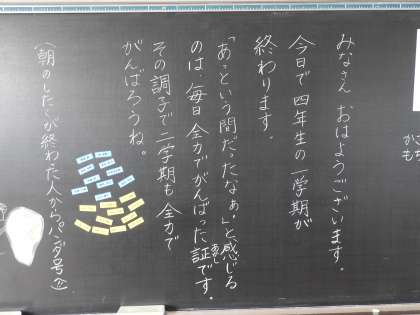 みなさん おはようございます。
今日で 四年生の 一学期が
終わります。
「あっという間だったなぁ。」と感じる
のは、毎日 全力でがんばった証です。
その調子で二学期も 全力で
がんばろうね。
(朝のしたくが終わった人からパンダ号